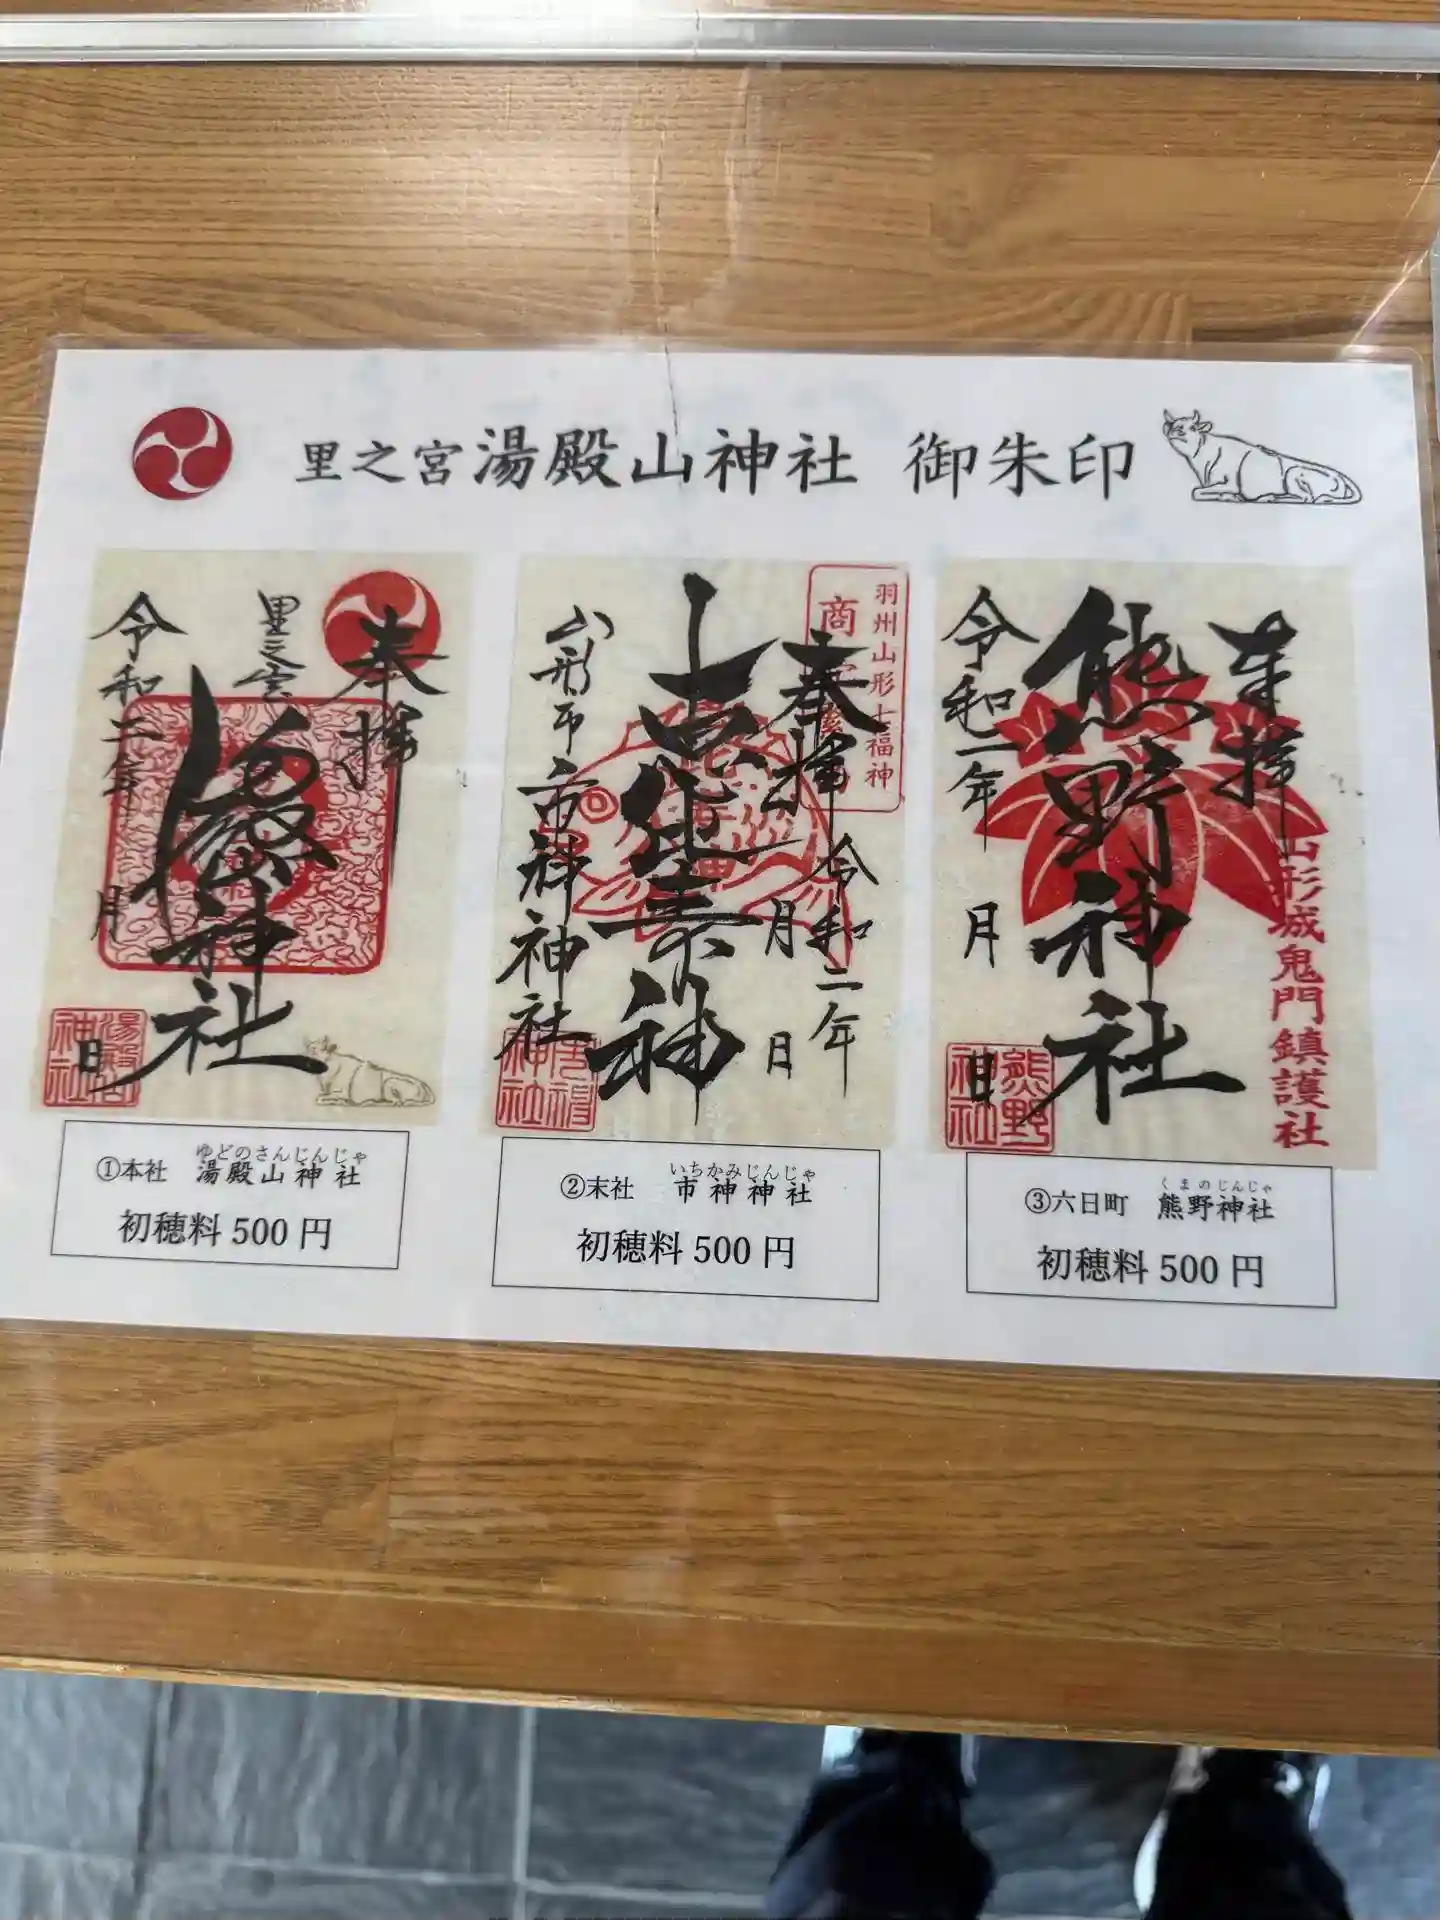 里之宮湯殿山神社 御朱印
奉拝
里之宮
湯殿山神社
令和二年
月
日
湯殿山
神社
羽州山形七福神
奉拝
令和二年
月
日
恵比寿神
山形市
市神神社
神社
奉拝
熊野神社
令和二年
月
日
山形城鬼門鎮護社
熊野
神社
①本社 湯殿山神社
ゆどのさんじんじゃ
初穂料500円
②末社 市神神社
いちかみじんじゃ
初穂料500円
③六日町 熊野神社
くまのじんじゃ
初穂料500円